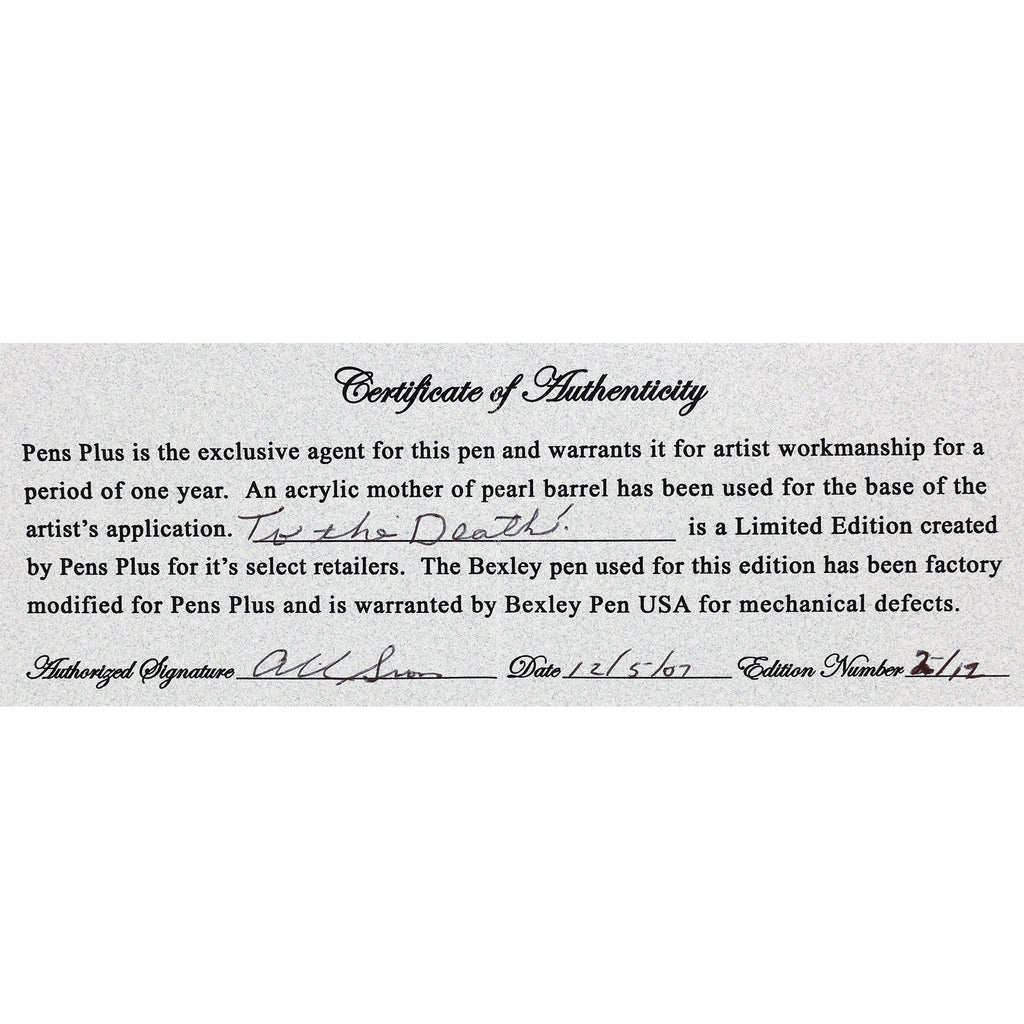 Certificate of Authenticity
Pens Plus is the exclusive agent for this pen and warrants it for artist workmanship for a
period of one year. An acrylic mother of pearl barrel has been used for the base of the
artist's application. To the Death! is a Limited Edition created
by Pens Plus for it's select retailers. The Bexley pen used for this edition has been factory
modified for Pens Plus and is warranted by Bexley Pen USA for mechanical defects.
Authorized Signature Date 12/5/07 Edition Number 2/12